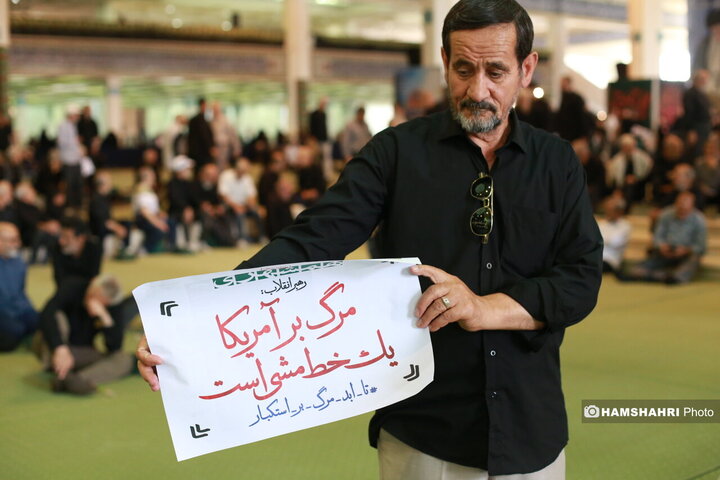 رهبر انقلاب:
« مرگ بر آمریکا
یك خط مشی است »
#تا_ابد_مرگ_بر_استکبار
»
HAMSHAHRI Photo